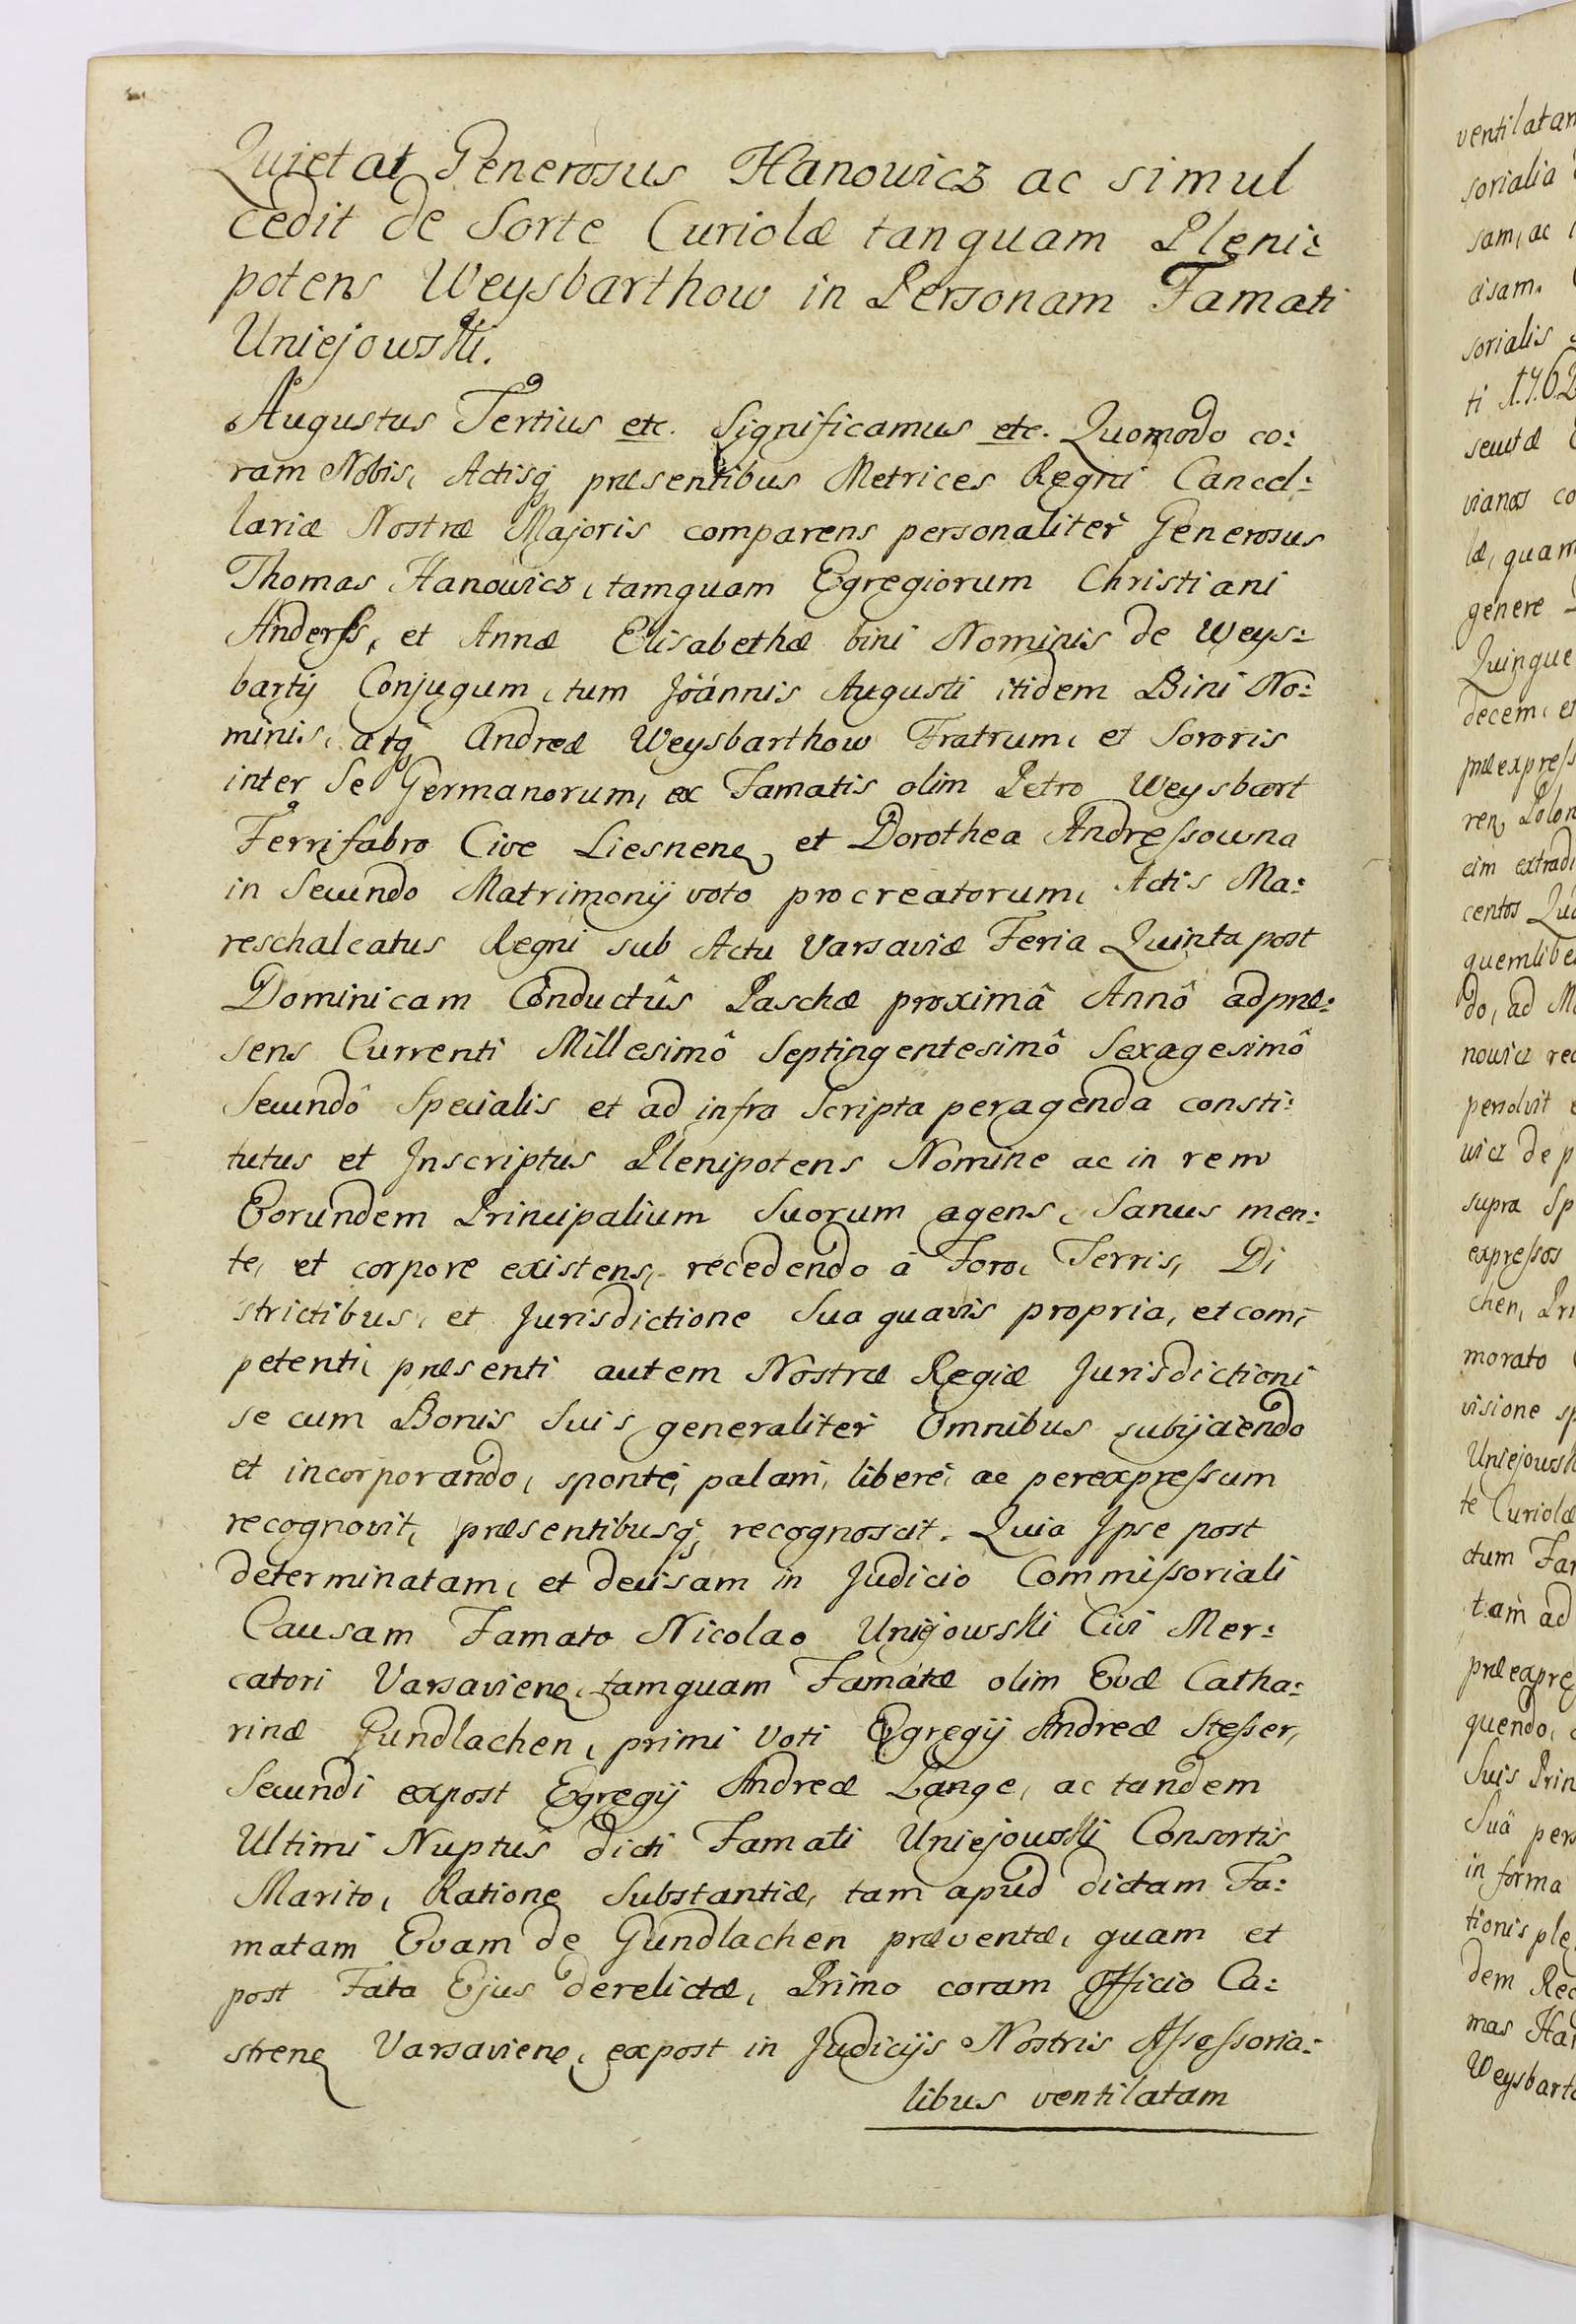 Quietat Generosus Hanowicz ac simul
cedit de Sorte Curiolæ tanquam Pleni:
potens Weysbarthow in Personam Famati
Uniejowski.
Augustus Tertius etc. Significamus etc. Quomodo co:
ram Nobis, Actisq præsentibus Metrices Regni Cancel:
lariæ Nostræ Majoris comparens personaliter Generosus
Thomas Hanowicz, tamquam Egregiorum Christiani
Anderss, et Annæ Elisabethæ bini Nominis de Weys:
bartÿ Conjugum, tum Joannis Augusti itidem Bini No:
minis, atq Andreæ Weysbarthow Fratrum, et Sororis
inter Se Germanorum, ex Famatis olim Petro Weysbart
Ferrifabro Cive Liesnen et Dorothea Andressowna
in Secundo Matrimonÿ voto procreatorum, Actis Ma:
reschalcatus Regni sub Actu Varsaviæ Feria Quinta post
Dominicam Conductûs Paschæ proximâ Annô adpræ:
sens Currenti Millesimô Septingentesimô Sexagesimô
Secundô Specialis et ad infra Scripta peragenda consti:
tutus et Inscriptus Plenipotens Nomine ac in rem
Eorundem Principalium Suorum agens, Sanus men:
te, et corpore existens, recedendo à Foro, Terris, Di
strictibus, et Jurisdictione Sua quavis propria, et com:
petenti, præsenti autem Nostræ Regiæ Jurisdictioni
se cum Bonis Suis generaliter Omnibus subÿciendo
et incorporando, sponte, palam, libere, ac perexpressum
recognovit, præsentibusq, recognoscit. Quia Ipse post
determinatam, et decisam in Judicio Commissoriali
Causam Famato Nicolao Uniejowski Civi Mer:
catori Varsavien, tamquam Famatæ olim Evæ Catha:
rinæ Gundlachen, primi Voti Egregÿ Andreæ Stesser,
Secundi expost Egregÿ Andreæ Lange, ac tandem
Ultimi Nuptûs dicti Famati Uniejowski Consortis
Marito, Ratione Substantiæ, tam apud dictam Fa:
matam Evam de Gundlachen præventæ, quam et
post Fata Ejus derelictæ, Primo coram Officio Ca:
stren Varsavien, expost in Judicÿs Nostris Assessoria:
libus ventilatam